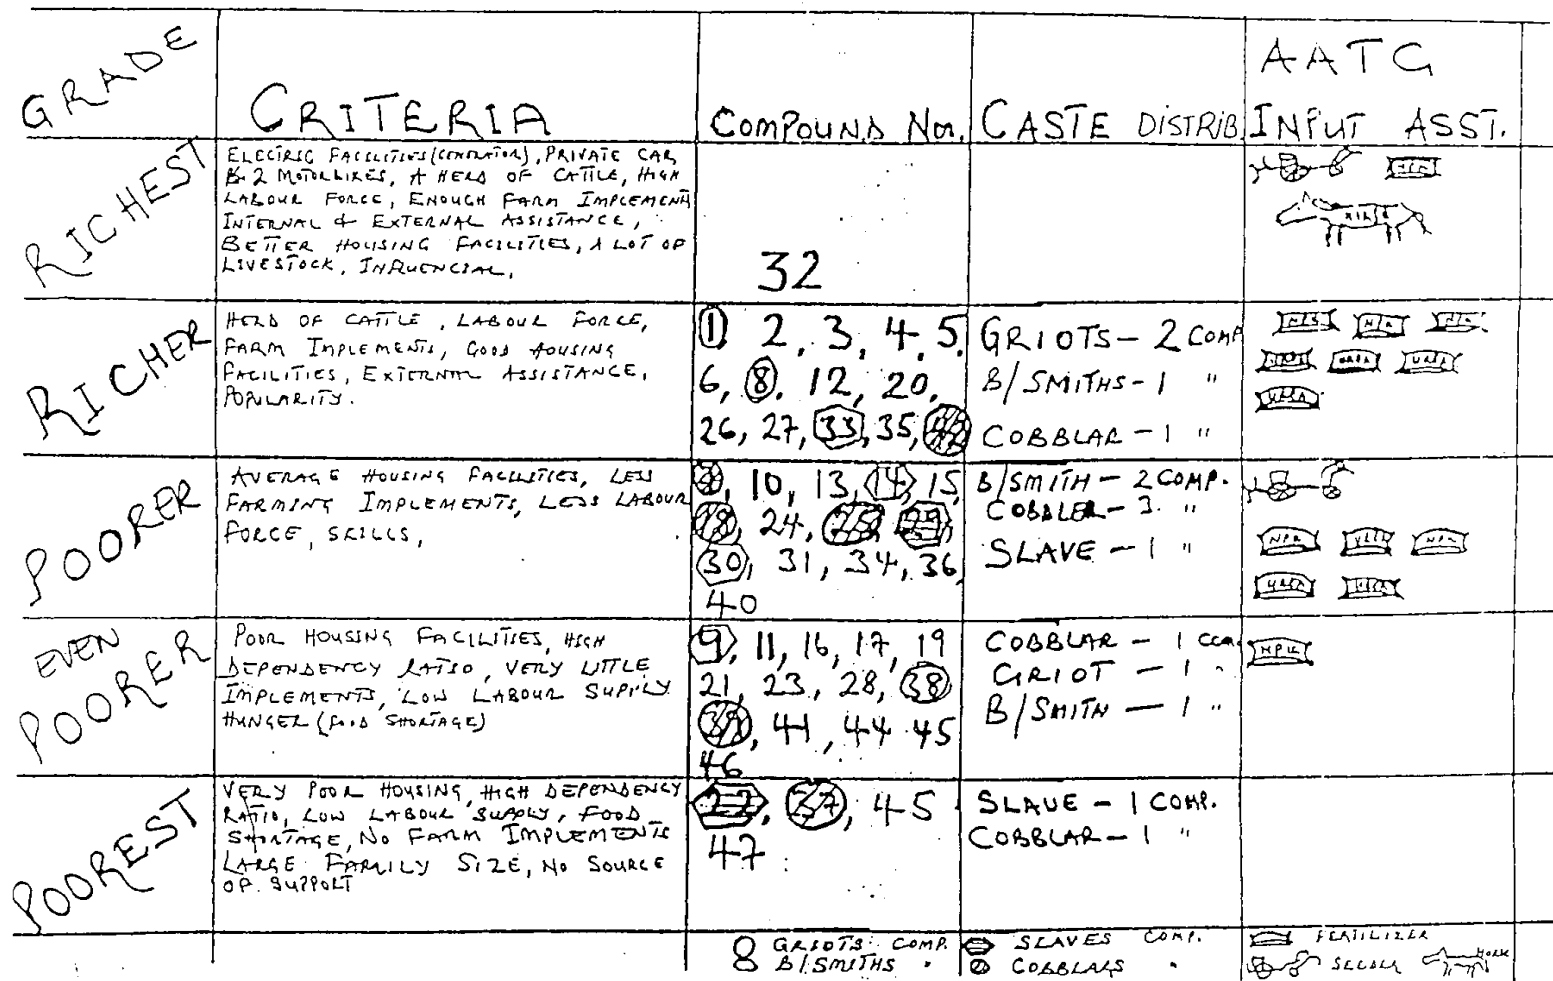 GRADE
CRITERIA
COMPOUND Nos.
CASTE DISTRIB
AATG
INPUT ASST.
RICHEST
ELECTRIC FACILITIES (GENERATOR), PRIVATE CAR,
& 2 MOTORBIKES, A HERD OF CATTLE, HIGH
LABOUR FORCE, ENOUGH FARM IMPLEMENTS
INTERNAL & EXTERNAL ASSISTANCE,
BETTER HOUSING FACILITIES, A LOT OF
LIVESTOCK, INFLUENCIAL,
32
RICHER
HERD OF CATTLE, LABOUR FORCE,
FARM IMPLEMENTS, GOOD HOUSING
FACILITIES, EXTERNAL ASSISTANCE,
POPULARITY.
1 2, 3, 4, 5,
6, 8, 12, 20,
26, 27, 33, 35, 42
GRIOTS - 2 COMP
B/SMITHS - 1 "
COBBLAR - 1 "
UREA UREA
UREA
POORER
AVERAGE HOUSING FACILITIES, LESS
FARMING IMPLEMENTS, LESS LABOUR
FORCE, SKILLS,
10, 13, 14, 15,
18, 24, 25, 29,
30, 31, 34, 36,
40
B/SMITH - 2 COMP.
COBBLER - 3 "
SLAVE - 1 "
NPK
UREA
EVEN
POORER
POOR HOUSING FACILITIES, HIGH
DEPENDENCY RATIO, VERY LITTLE
IMPLEMENTS, LOW LABOUR SUPPLY
HUNGER (FOOD SHORTAGE)
9, 11, 16, 17, 19
21, 23, 28, 38
39, 41, 44 45
46
COBBLAR - 1 COM
GRIOT - 1 "
B/SMITH - 1 "
NPK
POOREST
VERY POOR HOUSING, HIGH DEPENDENCY
RATIO, LOW LABOUR SUPPLY, FOOD
SHORTAGE, NO FARM IMPLEMENTS
LARGE FAMILY SIZE, NO SOURCE
OF SUPPORT
22, 37, 45
47
SLAVE - 1 COMP.
COBBLAR - 1 "
GRIOTS COMP.
B/SMITHS "
SLAVES COMP.
COBBLARS "
FERTILIZER
SEEDER HORSE